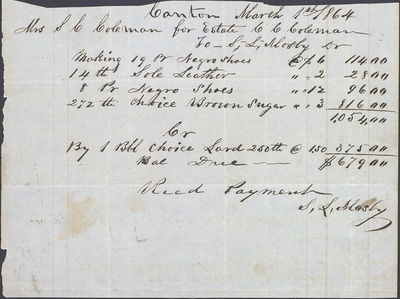 Canton March 1st/1864
Mrs S. C. Coleman for Estate C C Coleman
To - S, L, Mosby Dr
Making 19 Pr Negro Shoes @ $6 114 00
14 lb Sole Leather " " 2 28 00
8 Pr Negro Shoes " " 12 96 00
272 lb Choice Brown Sugar " " 3 816 00
1054,00
Cr
By 1 Bbl Choice Lard 250 lb @ 150 375 00
Bal Due $679 00
Recd Payment
S, L, Mosby